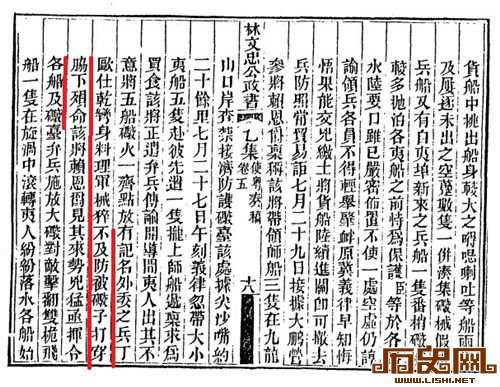 貨船中挑出船身較大之喇吐等船兩
及屢逐未出之空躉數隻一併湊集礮械假
兵船又有自夷埠新來之兵船一隻番梢礮
較多拋泊各夷船之前恃爲保護臣等於各
水陸要口雖已嚴密佈置不使一處空虛仍諄
諭領兵各員不得輕舉肇衅原冀義律早知悔
悟果能交兇繳土將貨船陸續進關卽可撤去
兵防照常貿易詎七月二十九日接據大鵬營
參將賴恩爵稟稱該將帶領師船三隻在九龍
林文忠公政書 乙集 使粵奏稿 卷五
山口岸查禁接濟防護礮臺該處距尖沙嘴約
二十餘里七月二十七日午刻義律忽帶大小
夷船五隻赴彼先遣一隻攏上師船遞稟求爲
買食該將正遣弁兵傳諭開導間夷人出其不
意將五船礮火一齊點放有記名外委之兵丁
歐仕乾彎身料理軍械猝不及防被礮子打穿
脇下殞命該將賴恩爵見其來勢兇猛亟揮令
各船及礮臺弁兵施放大礮對敵擊翻雙桅飛
船一隻在旋渦中滾轉夷人紛紛落水各船始
历史网
WWW.LISHI.NET